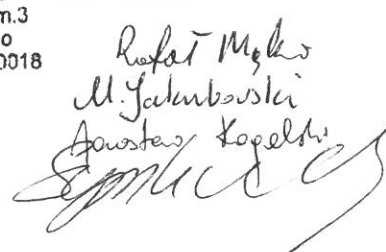 m.3
o
0018
Rafał Mężko
M. Jakubowski
Jarosław Kogelski